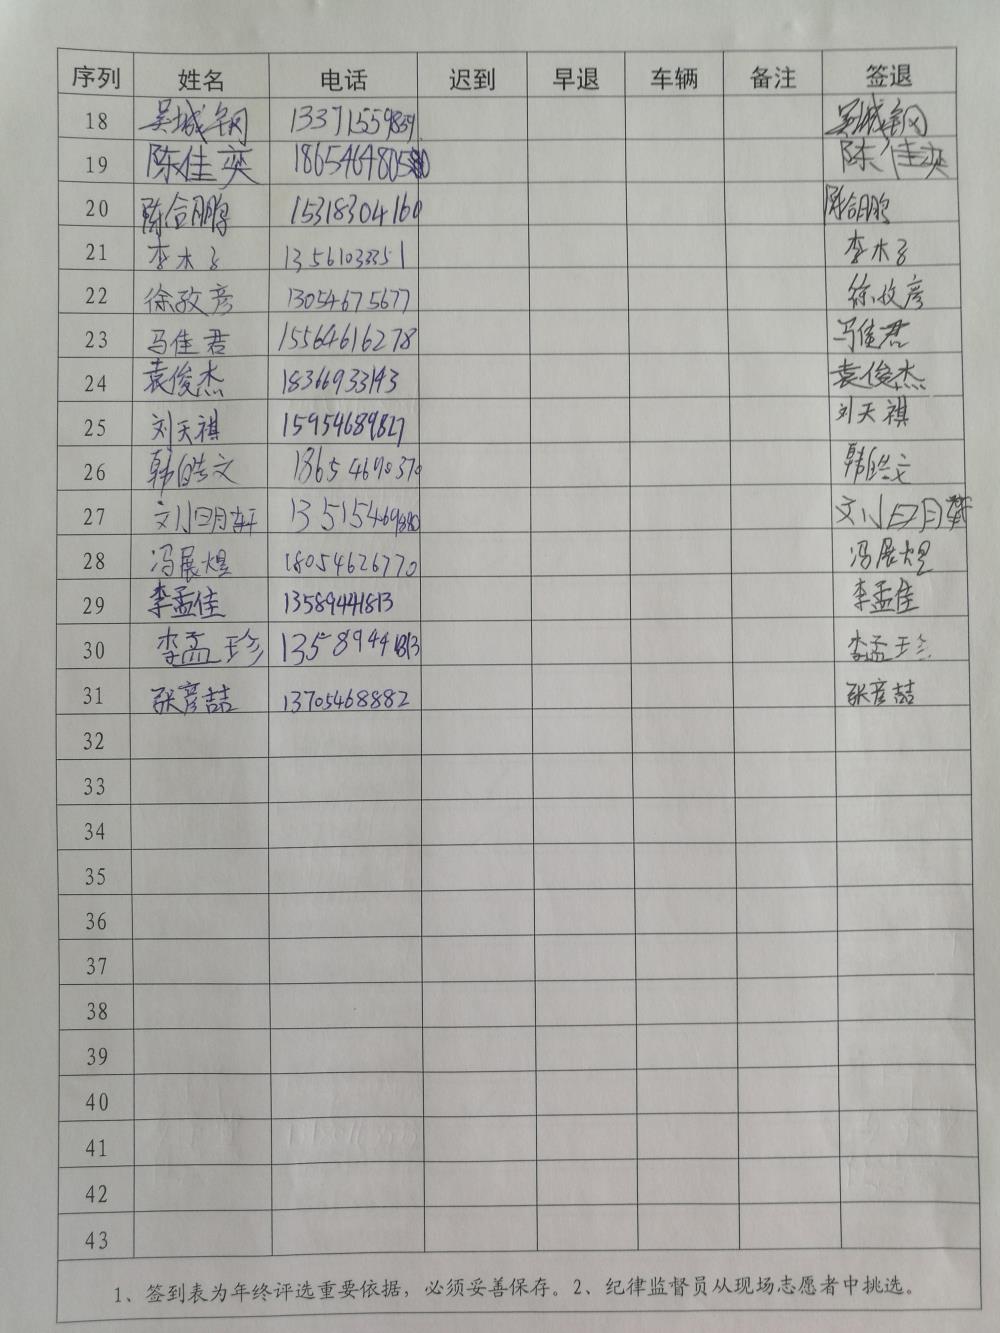 序列 姓名 电话 迟到 早退 车辆 备注 签退
18 吴城钢 13371559839 吴城钢
19 陈佳奕 陈佳奕
20 陈合鹏 15318304160 陈合鹏
21 李木子 13561033351 李木子
22 徐敬彦 13054675677 徐敬彦
23 马佳君 15564616278 马佳君
24 袁俊杰 18366933143 袁俊杰
25 刘天祺 15954689827 刘天祺
26 韩皓文 18654690370 韩皓文
27 刘明轩 刘明轩
28 冯展煜 18054626770 冯展煜
29 李孟佳 13589441813 李孟佳
30 李孟珍 13589441813 李孟珍
31 张彦喆 13705468882 张彦喆
32
33
34
35
36
37
38
39
40
41
42
43
1、签到表为年终评选重要依据，必须妥善保存。2、纪律监督员从现场志愿者中挑选。